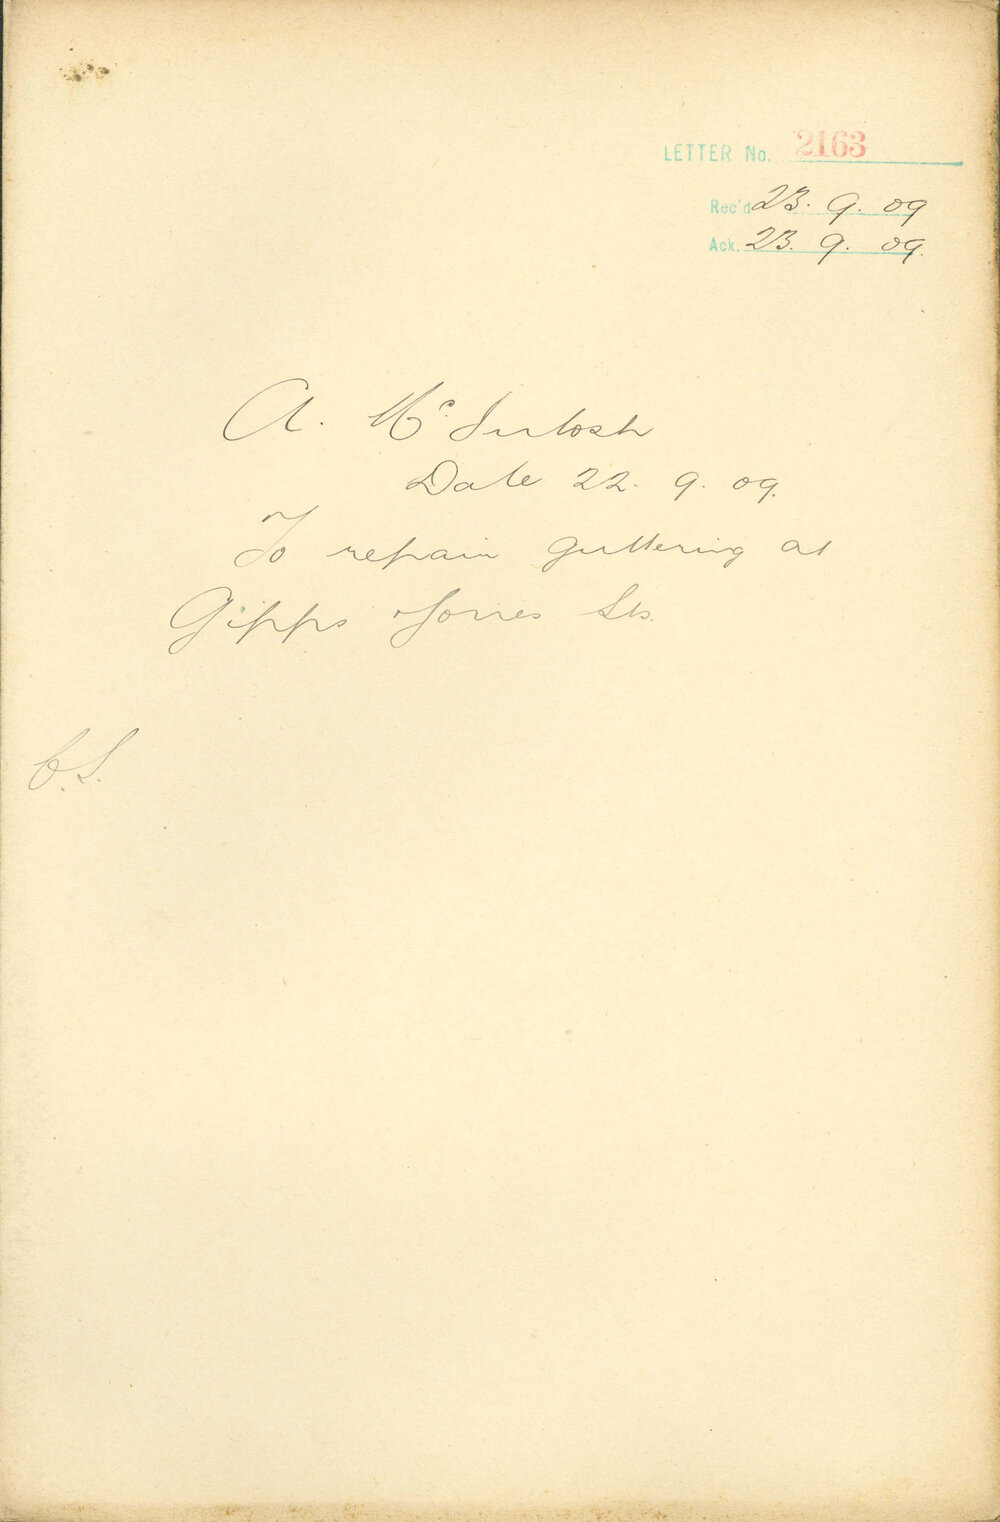 LETTER No. 2163
Rec'd 23. 9. 09
Ack. 23. 9. 09.
A. McIntosh
Date 22. 9. 09.
To repair guttering at
Gipps Torres Sts.
C.S.